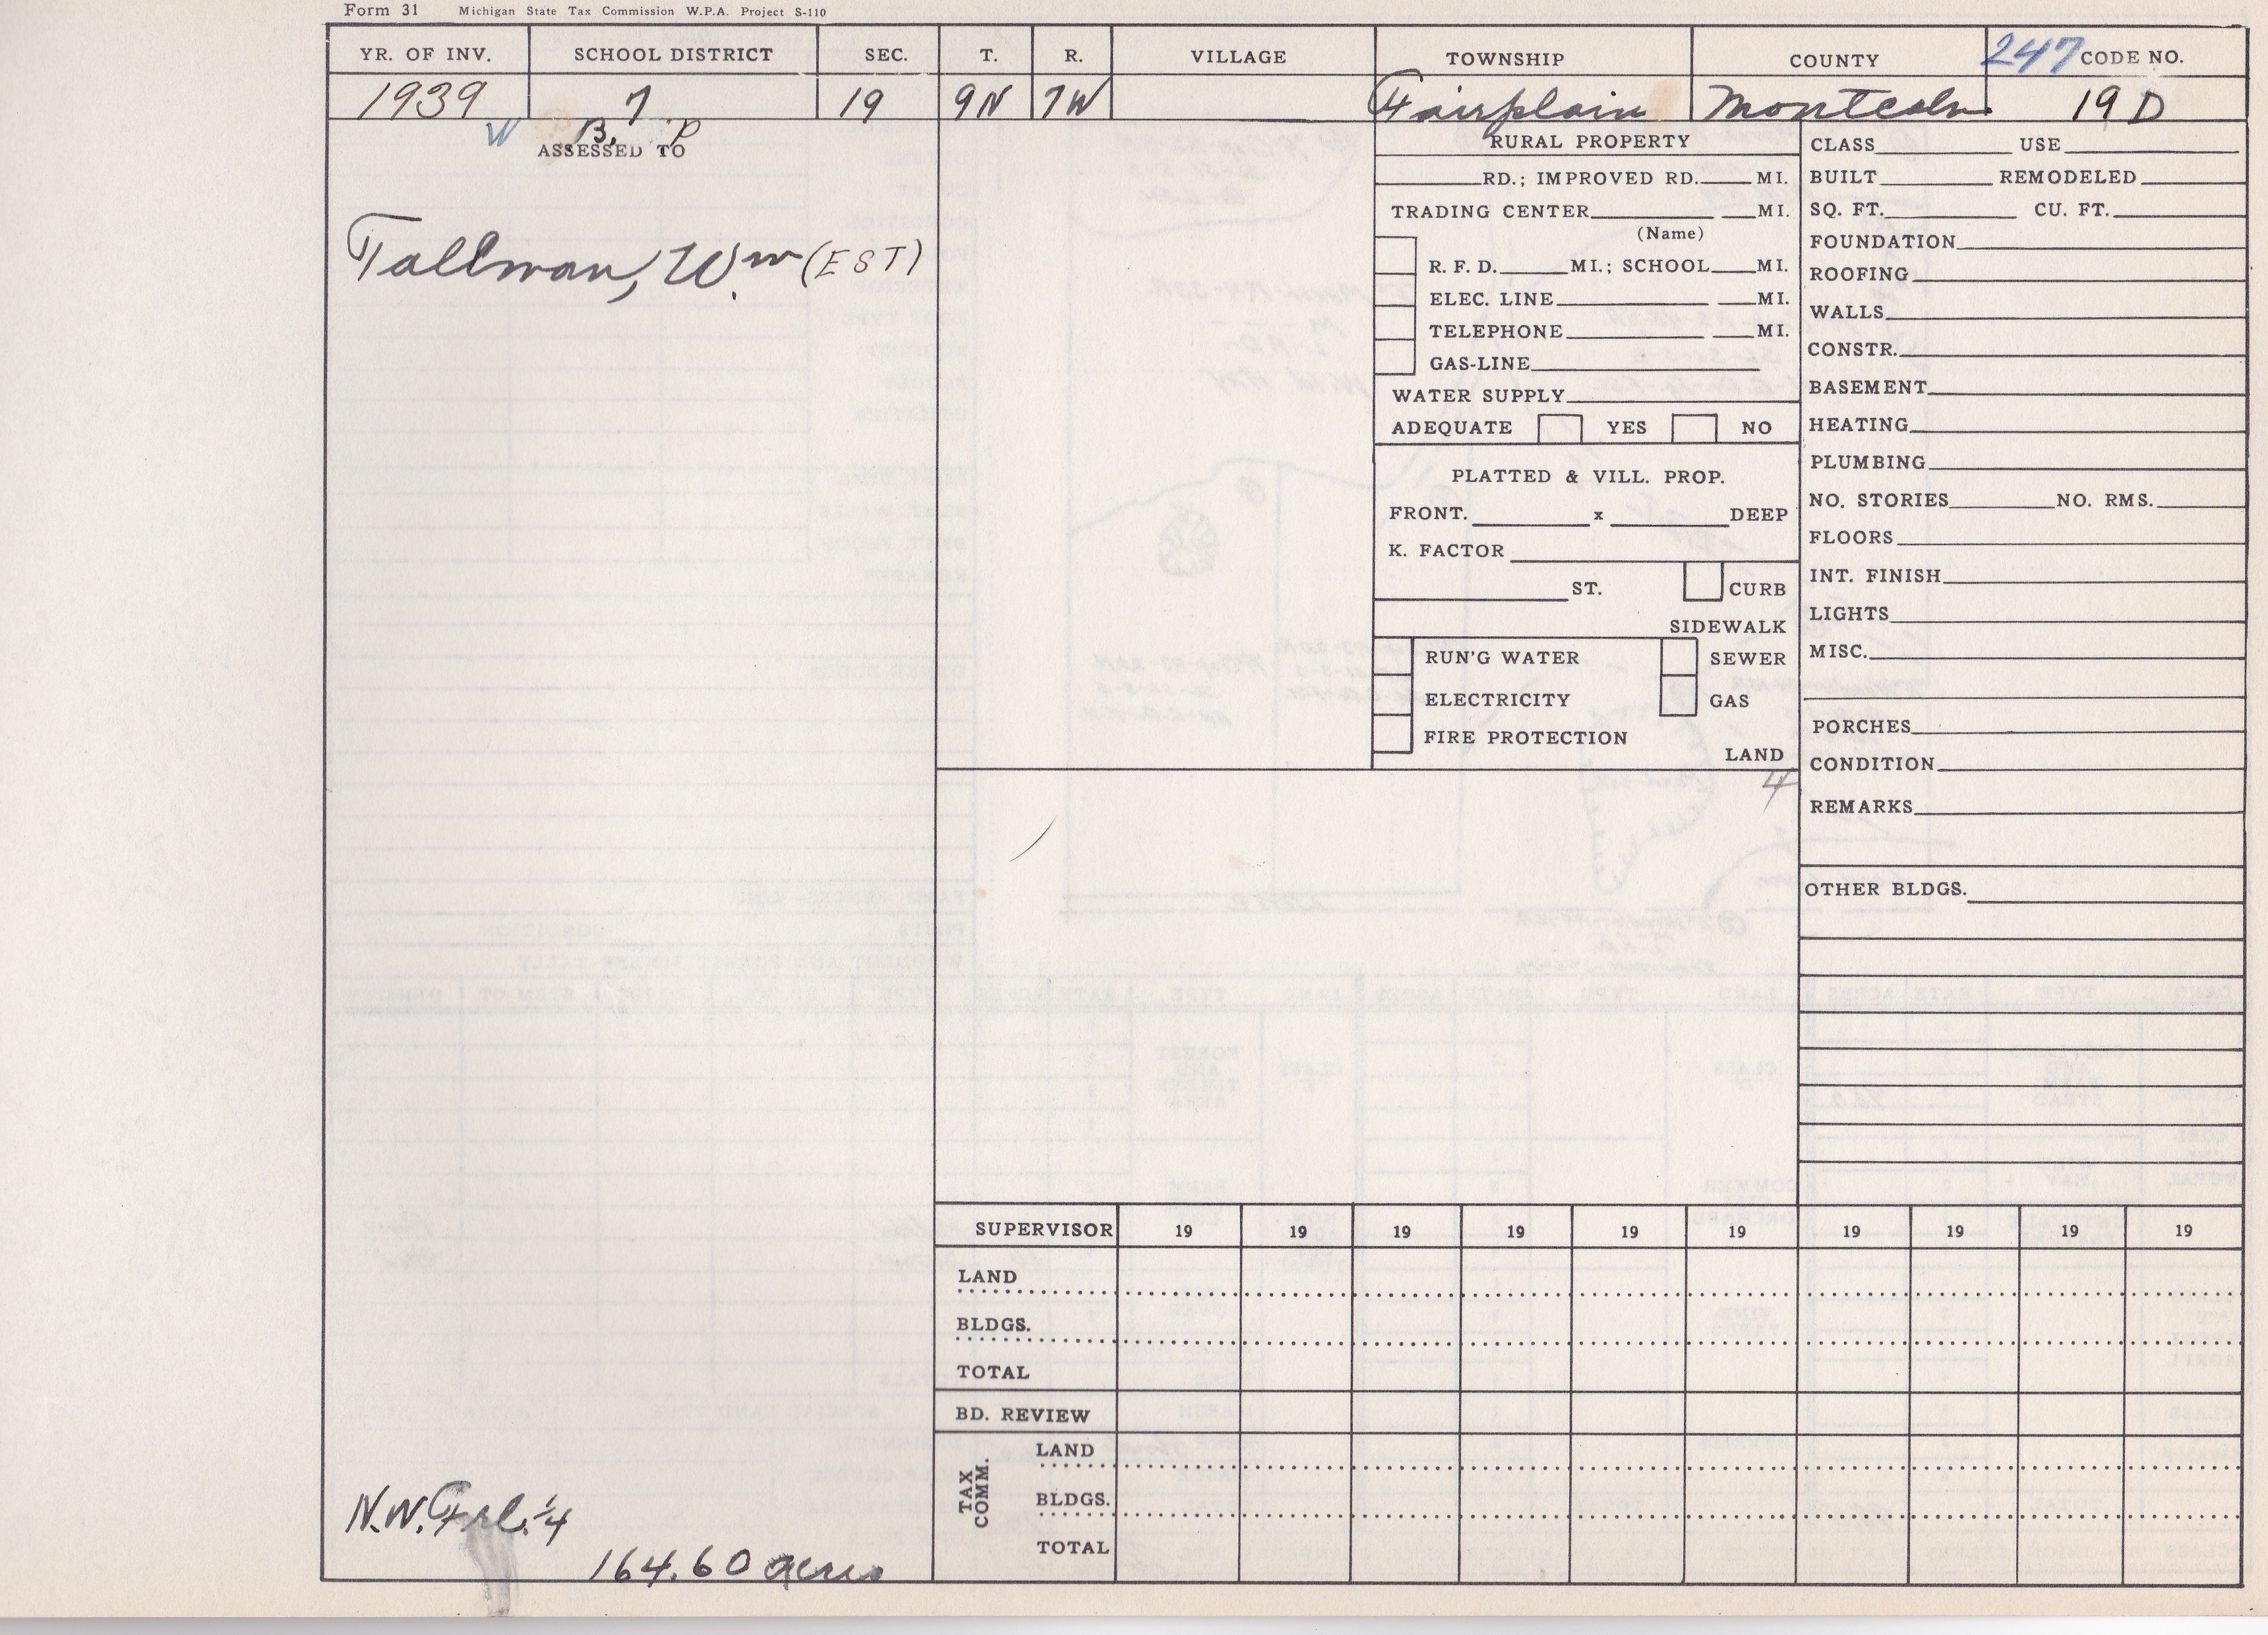 Form 31 Michigan State Tax Commission W.P.A. Project S-110
YR. OF INV. SCHOOL DISTRICT SEC. T. R. VILLAGE TOWNSHIP COUNTY 247 CODE NO.
1939 7 19 9N 7W Fairplain Montcalm 19 D
W B, P
ASSESSED TO
Tallman, Wm (EST)
N.W. Frl. 1/4
164.60 acres
RURAL PROPERTY
RD.; IMPROVED RD. MI.
TRADING CENTER MI.
(Name)
R. F. D. MI.; SCHOOL MI.
ELEC. LINE MI.
TELEPHONE MI.
GAS-LINE
WATER SUPPLY
ADEQUATE YES NO
PLATTED & VILL. PROP.
FRONT. x DEEP
K. FACTOR
ST. CURB
SIDEWALK
RUN'G WATER SEWER
ELECTRICITY GAS
FIRE PROTECTION
LAND
4
CLASS USE
BUILT REMODELED
SQ. FT. CU. FT.
FOUNDATION
ROOFING
WALLS
CONSTR.
BASEMENT
HEATING
PLUMBING
NO. STORIES NO. RMS.
FLOORS
INT. FINISH
LIGHTS
MISC.
PORCHES
CONDITION
REMARKS
OTHER BLDGS.
SUPERVISOR 19 19 19 19 19 19 19 19 19 19
LAND
BLDGS.
TOTAL
BD. REVIEW
TAX COMM.
LAND
BLDGS.
TOTAL